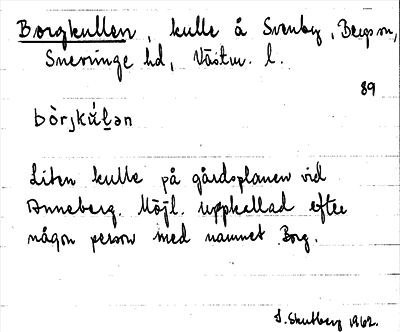 Borgkullen, kulle å Svenby, Bergs sn,
Snevringe hd, Västm. l.
89
bòrjkúlən
Liten kulle på gårdsplanen vid
Anneberg. Möjl. uppkallad efter
någon person med namnet Borg.
1962.